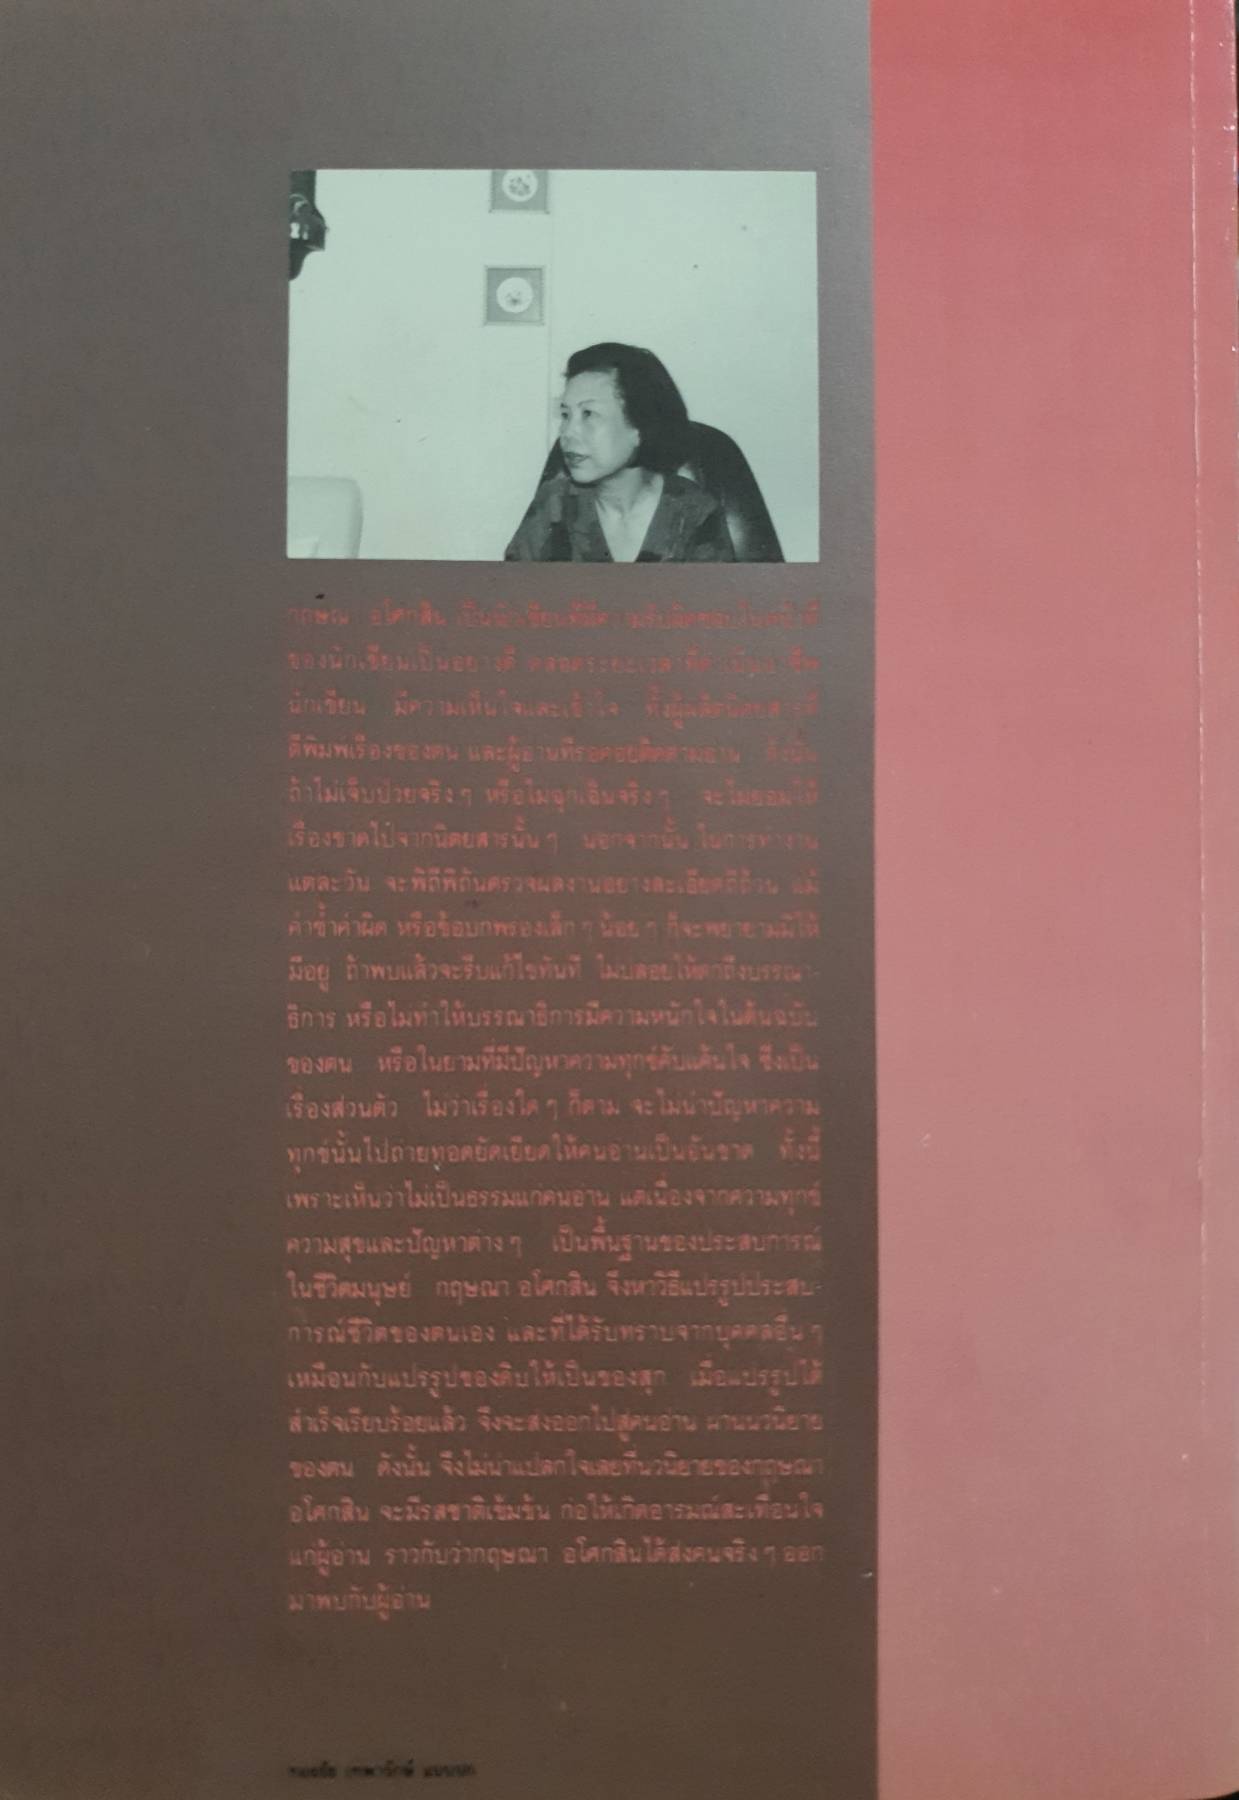 กฤษณา อโศกสิน เป็นนักเขียนที่มีความรับผิดชอบในหน้าที่
ของนักเขียนเป็นอย่างดี ตลอดระยะเวลาที่ดำเนินอาชีพ
นักเขียน มีความเห็นใจและเข้าใจ ทั้งผู้ผลิตนิตยสารที่
ตีพิมพ์เรื่องของตน และผู้อ่านที่รอคอยติดตามอ่าน ดังนั้น
ถ้าไม่เจ็บป่วยจริง ๆ หรือไม่ฉุกเฉินจริง ๆ จะไม่ยอมให้
เรื่องขาดไปจากนิตยสารนั้น ๆ นอกจากนั้น ในการทำงาน
แต่ละวัน จะพิถีพิถันตรวจผลงานอย่างละเอียดถี่ถ้วน แม้
คำซ้ำคำผิด หรือข้อบกพร่องเล็ก ๆ น้อย ๆ ก็จะพยายามมิให้
มีอยู่ ถ้าพบแล้วจะรีบแก้ไขทันที ไม่ปล่อยให้ตกถึงบรรณา-
ธิการ หรือไม่ทำให้บรรณาธิการมีความหนักใจในต้นฉบับ
ของตน หรือในยามที่มีปัญหาความทุกข์คับแค้นใจ ซึ่งเป็น
เรื่องส่วนตัว ไม่ว่าเรื่องใด ๆ ก็ตาม จะไม่นำปัญหาความ
ทุกข์นั้นไปถ่ายทอดยัดเยียดให้คนอ่านเป็นอันขาด ทั้งนี้
เพราะเห็นว่าไม่เป็นธรรมแก่คนอ่าน แต่เนื่องจากความทุกข์
ความสุขและปัญหาต่าง ๆ เป็นพื้นฐานของประสบการณ์
ในชีวิตมนุษย์ กฤษณา อโศกสิน จึงหาวิธีแปรรูปประสบ-
การณ์ชีวิตของตนเอง และที่ได้รับทราบจากบุคคลอื่น ๆ
เหมือนกับแปรรูปของดิบให้เป็นของสุก เมื่อแปรรูปได้
สำเร็จเรียบร้อยแล้ว จึงจะส่งออกไปสู่คนอ่าน ผ่านนวนิยาย
ของตน ดังนั้น จึงไม่น่าแปลกใจเลยที่นวนิยายของกฤษณา
อโศกสิน จะมีรสชาติเข้มข้น ก่อให้เกิดอารมณ์สะเทือนใจ
แก่ผู้อ่าน ราวกับว่ากฤษณา อโศกสินได้ส่งคนจริง ๆ ออก
มาพบกับผู้อ่าน